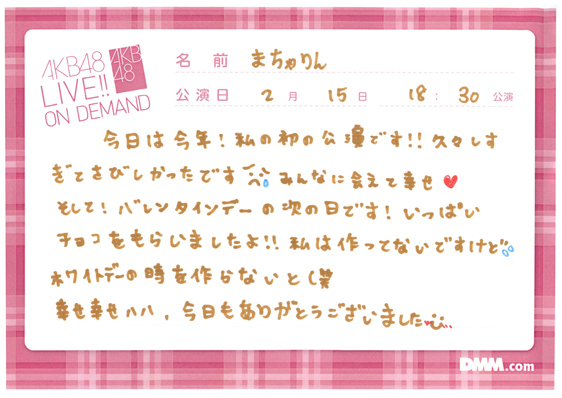 AKB48
LIVE!!
ON DEMAND
AKB
48
名前 まちゃりん
公演日 2月 15日 18:30 公演
今日は今年！私の初の公演です!! 久々しす
ぎてさびしかったです みんなに会えて幸せ
そして！バレンタインデーの次の日です！いっぱい
チョコをもらいましたよ!! 私は作ってないですけど
ホワイトデーの時を作らないと（笑
幸せ幸せハハ，今日もありがとうございました
DMM.com